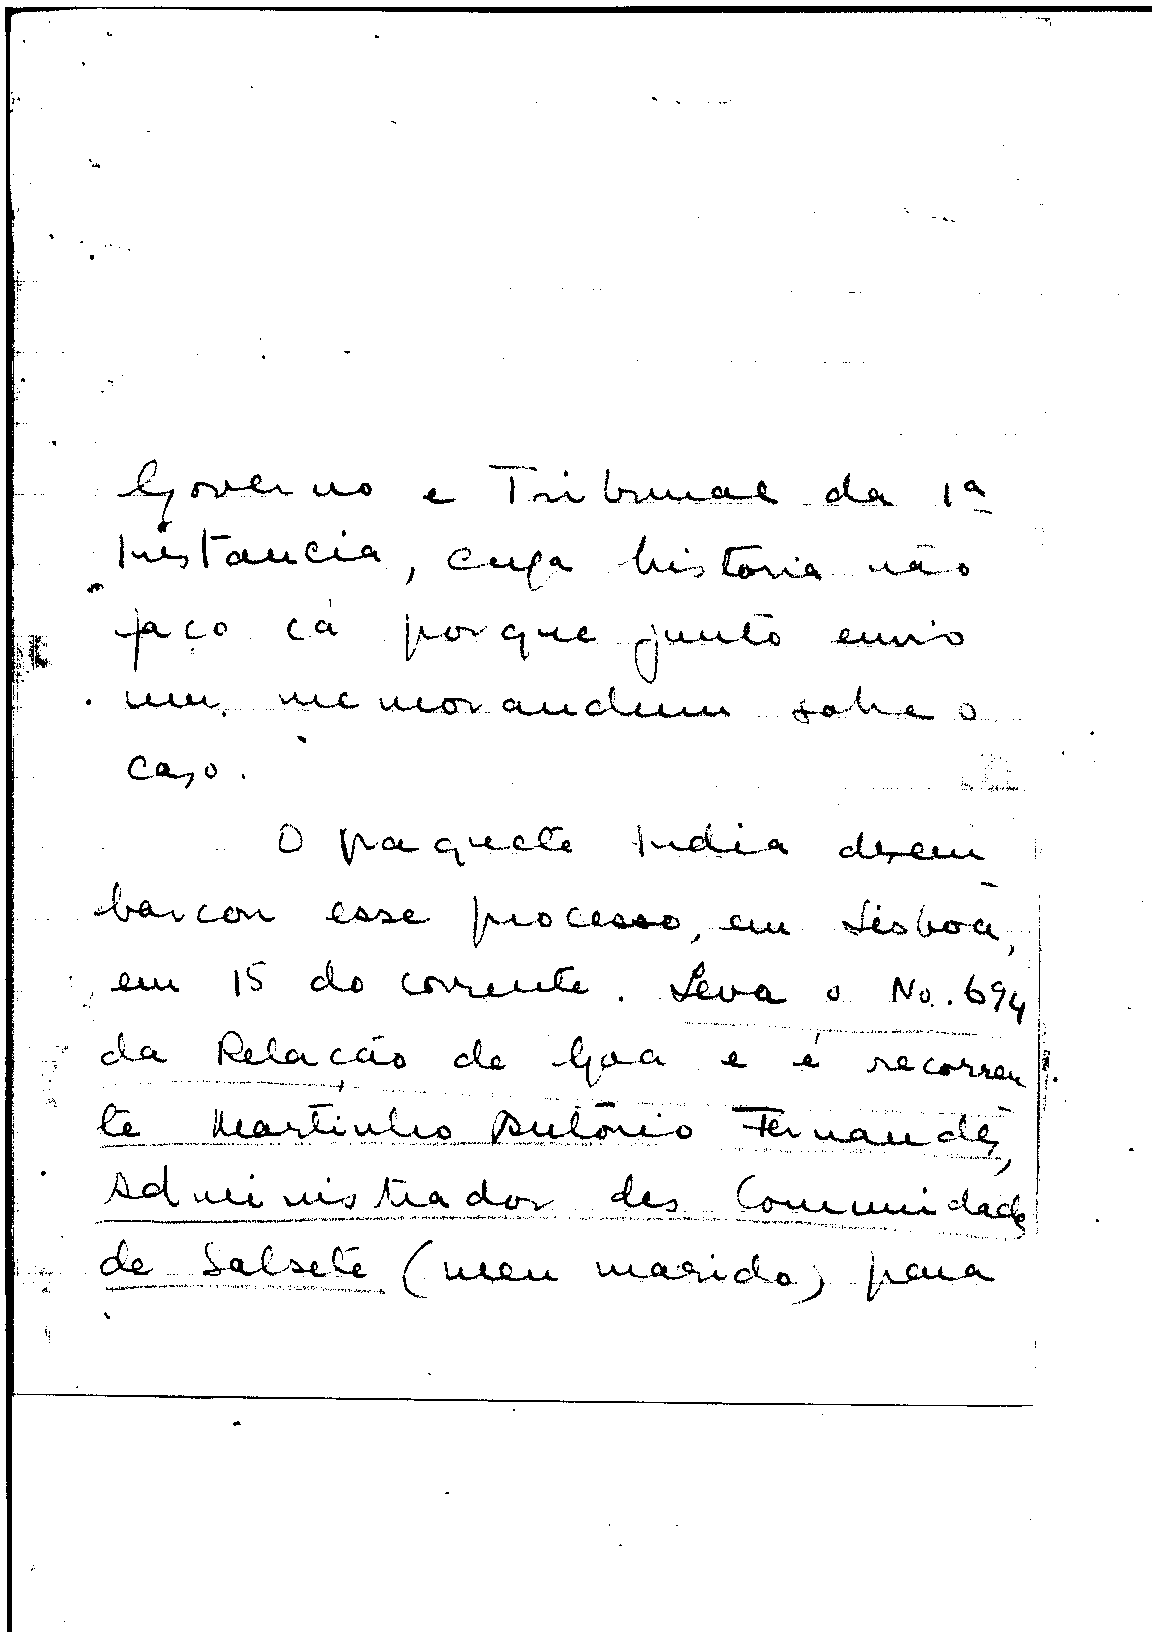 Governo e Tribunal da 1ª
Instancia, cuja historia não
faço cá porque junto envio
um memorandum sobre o
caso.
O paquete India desem
barcou esse processo, em Lisboa,
em 15 do corrente. Leva o No. 694
da Relação de Goa e é recorren
te Martinho António Fernandes,
Administrador das Comunidades
de Salsete (meu marido) para